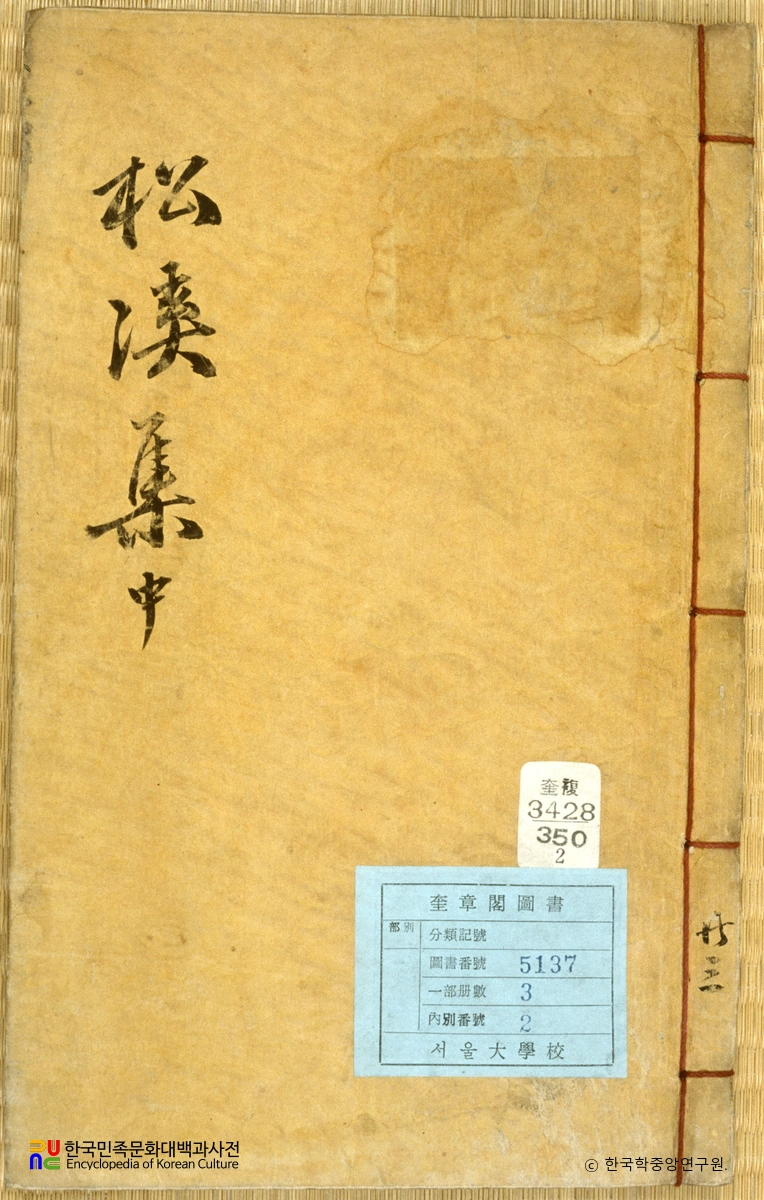 松溪集中
奎複
3428
350
2
奎章閣圖書
部別
分類記號
圖書番號 5137
一部册數 3
內別番號 2
서울大學校
共三
한국민족문화대백과사전
Encyclopedia of Korean Culture
ⓒ 한국학중앙연구원.